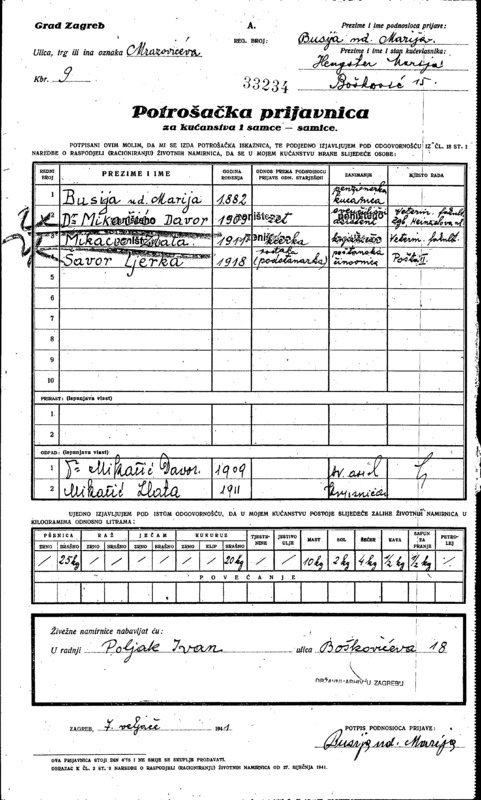 Grad Zagreb
A.
Prezime i ime podnosioca prijave:
REG. BROJ:
Busija ud. Marija.
Ulica, trg ili ina oznaka Mrazovićeva
Prezime i ime i stan kućevlasnika:
Hengster Marija
Kbr. 9
33234
Bošković 15.
Potrošačka prijavnica
za kućanstva i samce — samice.
POTPISANI OVIM MOLIM, DA MI SE IZDA POTROŠAČKA ISKAZNICA, TE PODJEDNO IZJAVLJUJEM POD ODGOVORNOŠĆU IZ ČL. 18 ST. 1
NAREDBE O RASPODJELI (RACIONIRANJU) ŽIVOTNIH NAMIRNICA, DA SE U MOJEM KUĆANSTVU HRANE SLIJEDEĆE OSOBE:
REDNI BROJ PREZIME I IME GODINA ROĐENJA ODNOS PREMA PODNOSIOCU PRIJAVE ODN. STARJEŠINI ZANIMANJE MJESTO RADA
1 Busija ud. Marija 1882 penzionerka kućanica
2 Dr Davor 1909 zet Veterin. fakult.
3 Zlata 1911 kćerka Veterin. fakult.
4 Savor Ljerka 1918 (podstanarka) poštanska činovnica Pošta II
5
6
7
8
9
10
PRIRAST: (Ispunjava vlast)
1
2
OTPAD: (Ispunjava vlast)
1 Dr Mikačić Davor. 1909
2 Mikačić Zlata 1911
UJEDNO IZJAVLJUJEM POD ISTOM ODGOVORNOŠĆU, DA U MOJEM KUĆANSTVU POSTOJE SLIJEDEĆE ZALIHE ŽIVOTNIH NAMIRNICA U
KILOGRAMIMA ODNOSNO LITRAMA:
PŠENICA RAŽ JEČAM KUKURUZ TJESTENINE JESTIVO ULJE MAST SOL ŠEĆER KAVA SAPUN ZA PRANJE PETROLEJ
ZRNO BRAŠNO ZRNO BRAŠNO ZRNO BRAŠNO ZRNO KLIP BRAŠNO
/ 25kg / / / / / / 20kg / / 10kg 2kg 4kg 1/2 kg 1/2 kg
POVEĆANJE
Živežne namirnice nabavljat ću:
U radnji Poljak Ivan ulica Boškovićeva 18
DRŽAVNI ARHIV U ZAGREBU
ZAGREB, 7. veljače 1941
POTPIS PODNOSIOCA PRIJAVE:
Busija ud. Marija
OVA PRIJAVNICA STOJI DIN 0'75 I NE SMIJE SE SKUPLJE PRODAVATI.
OBRAZAC K ČL. 2 ST. 2 NAREDBE O RASPODJELI (RACIONIRANJU) ŽIVOTNIH NAMIRNICA OD 27. SIJEČNJA 1941.